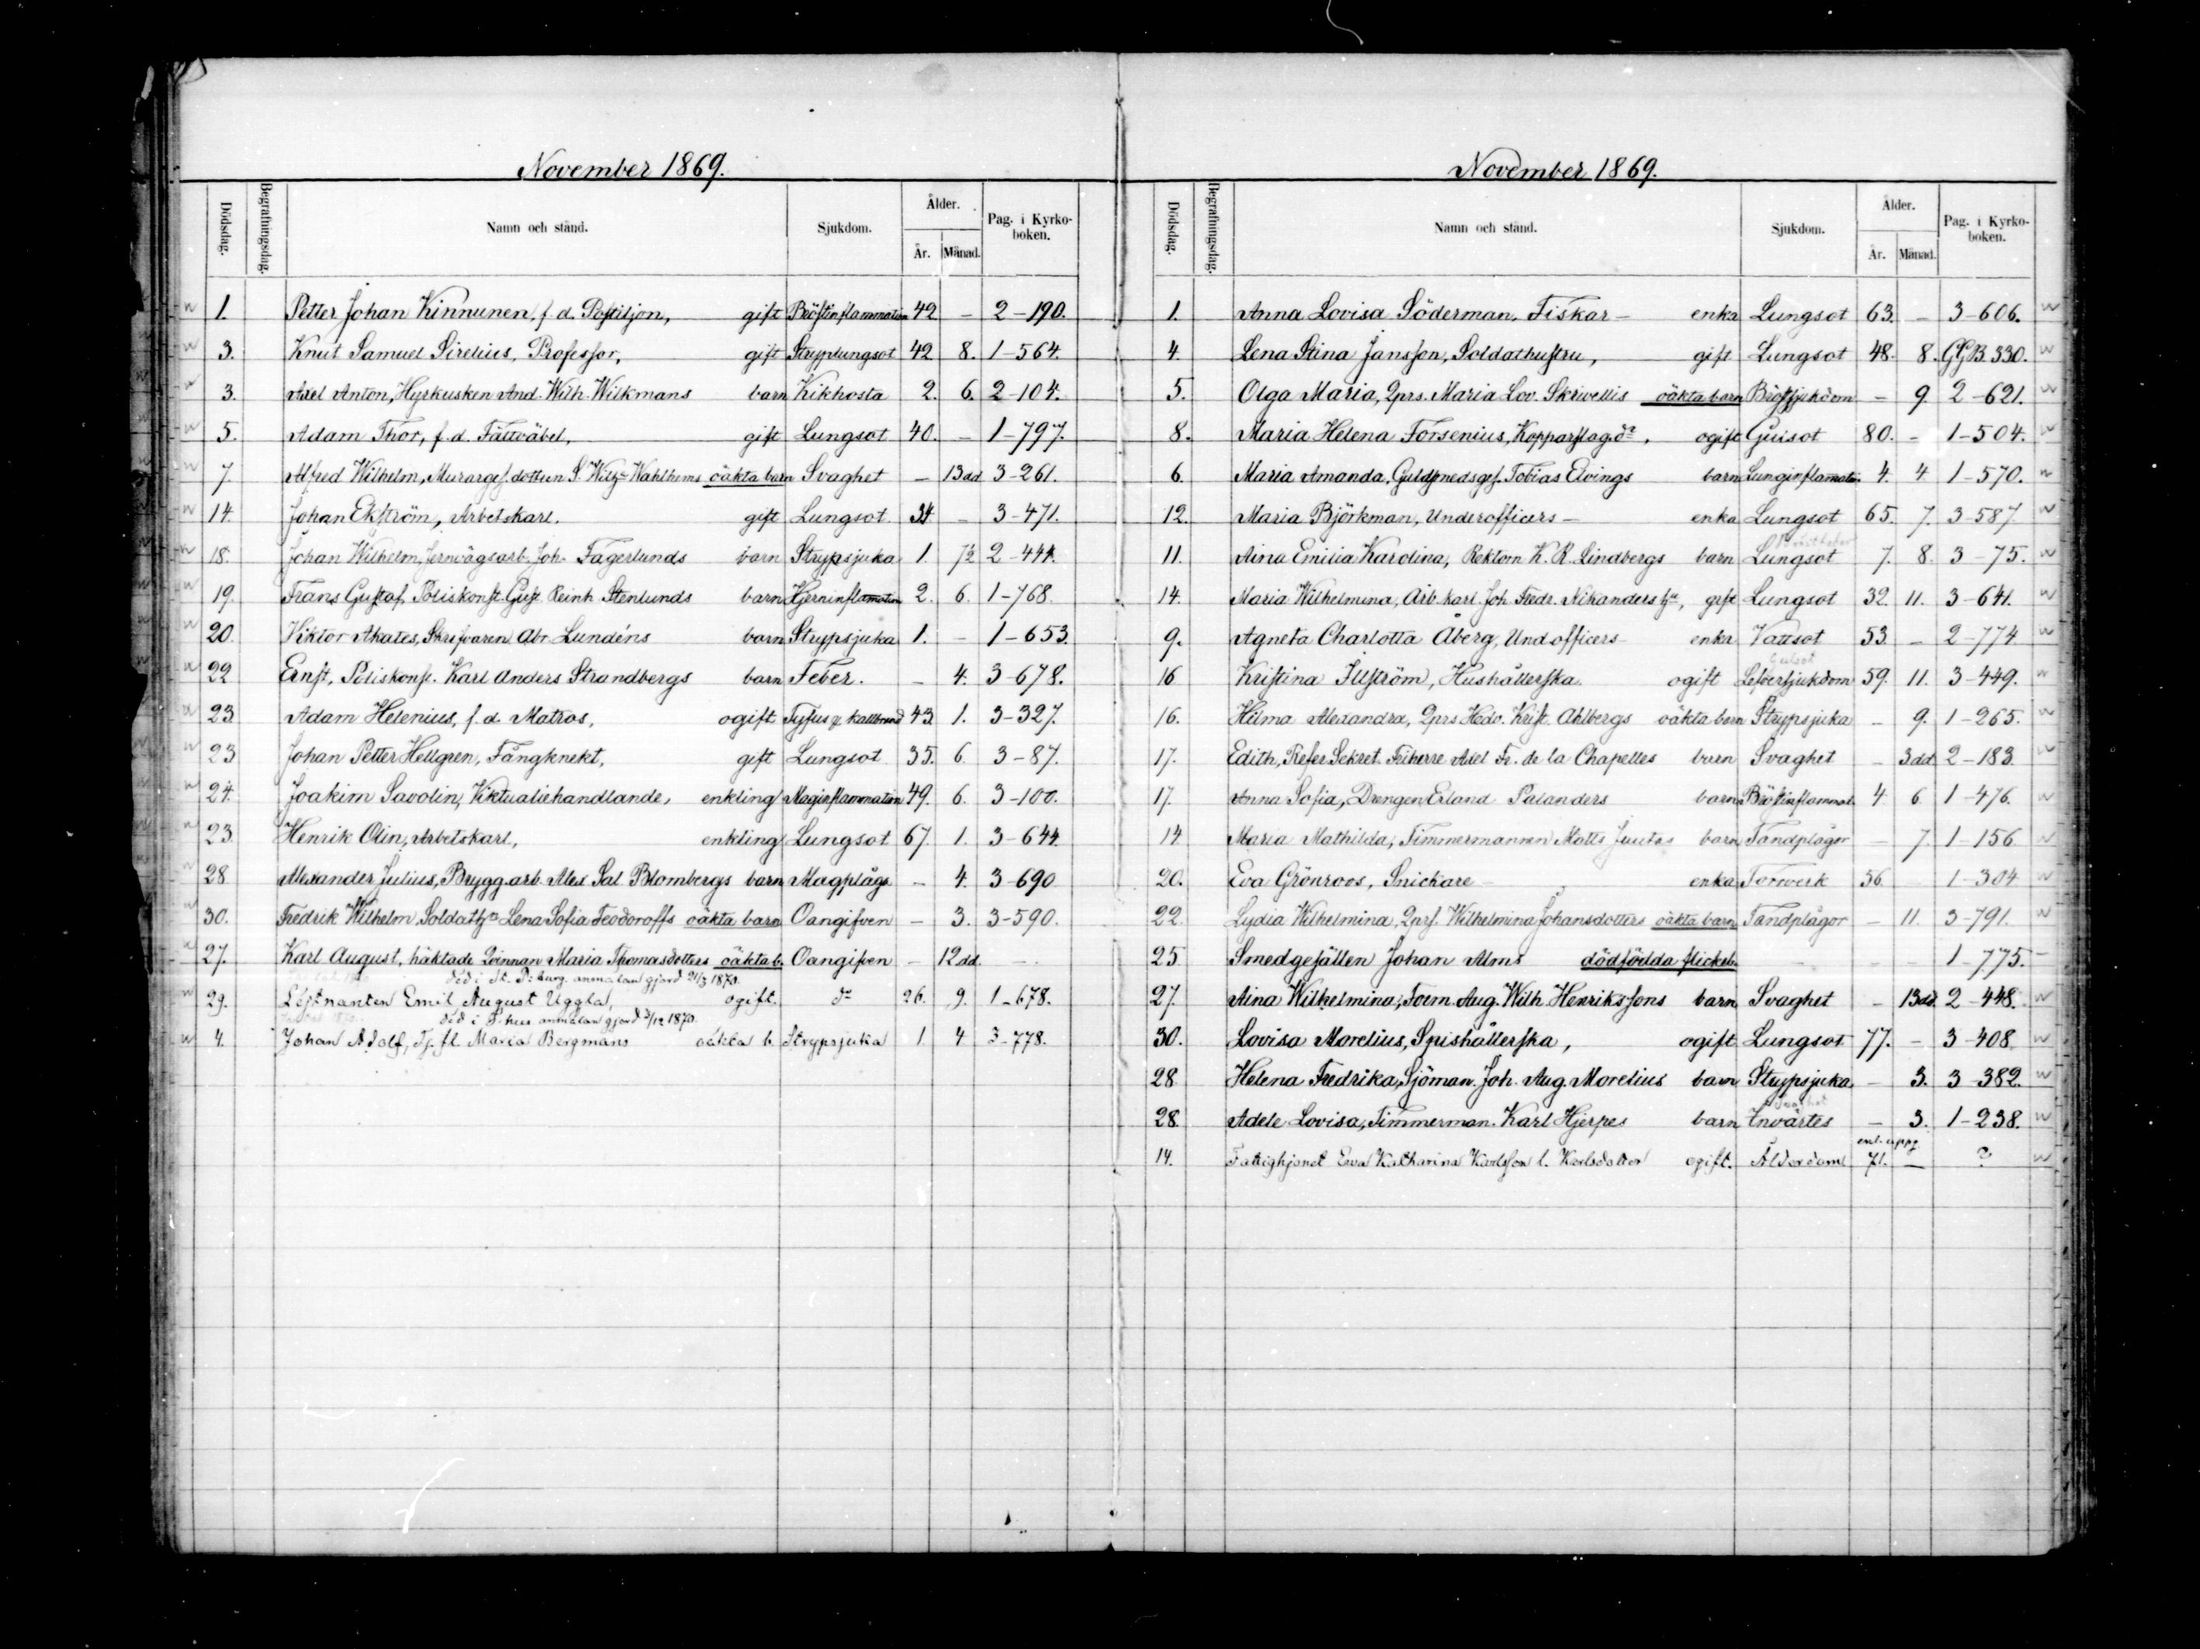 November 1869.
Dödsdag. Begrafningsdag. Namn och stånd. Sjukdom. Ålder. År. Månad. Pag. i Kyrko-boken.
1. Petter Johan Kinnunen, f. d. Postiljon, gift Bröstinflammation 42 – 2–190.
3. Knut Samuel Sirelius, Professor, gift Strypplungsot 42 8. 1–564.
3. Axel Anton, Hyrkusken And. Wilh. Wilkmans barn Kikhosta 2. 6. 2–104.
5. Adam Thor, f. d. Fältväbel, gift Lungsot 40. – 1–797.
7. Alfred Wilhelm, Murarges. dottren S. Wahlhems oäkta barn Svaghet – 13 dd 3–261.
14. Johan Ekström, Arbetskarl. gift Lungsot 34 – 3–471.
18. Johan Wilhelm, Jernvägsarb. Joh. Fagerlunds barn Strypsjuka 1. 7½ 2–444.
19. Frans Gustaf, Poliskonst. Gust. Reinh Stenlunds barn Hjerninflamation 2. 6. 1–768.
20. Viktor Akates, Skrifvaren Abr. Lundéns barn Strypsjuka 1. – 1–653.
22 Ernst, Poliskonst. Karl Anders Strandbergs barn Feber. – 4. 3–678.
23. Adam Helenius, f. d. Matros, ogift Tyfus o. kallbrand 43. 1. 3–327.
23 Johan Petter Hellgren, Fångknekt, gift Lungsot 35. 6. 3–87.
24. Joakim Savolin, Viktualiehandlande, enkling Maginflammation 49. 6. 3–100.
23. Henrik Olin, Arbetskarl, enkling Lungsot 67. 1. 3–644.
28 Alexander Julius, Brygg.arb. Alex Sal Blombergs barn Magplåga – 4. 3–690
30. Fredrik Wilhelm Soldath:s Lena Sofia Feodoroffs oäkta barn Oangifven – 3. 3–590.
27. Karl August, häktade Qvinnan Maria Thomasdotters oäkta b. Oangifven – 12 dd. –
död i St. P:burg. anmälan gjord 21/3 1870.
29. Löjtnanten Emil August Uggla, ogift. d:o 26. 9. 1–678.
död i S. hus anmälan gjord 3/12 1870.
4. Johan Adolf, Tj. fl. Maria Bergmans oäkta b. Strypsjuka 1 4 3–778.
November 1869.
Dödsdag. Begrafningsdag. Namn och stånd. Sjukdom. Ålder. År. Månad. Pag. i Kyrko-boken.
1. Anna Lovisa Söderman, Fiskar– enka Lungsot 63. – 3–606.
4. Lena Stina Jansson, Soldathustru, gift Lungsot 48. 8. GGB. 330.
5. Olga Maria, Qprs. Maria Lov. Skrivellis oäkta barn Bröstsjukdom – 9 2–621.
8. Maria Helena Forsenius, Kopparslag. d:r, ogift Gulsot 80. – 1–504.
6. Maria Amanda, Guldsmedsges. Tobias Elvings barn Lunginflamation 4. 4 1–570.
12. Maria Björkman, Underofficers– enka Lungsot 65. 7. 3–587
11. Aina Emilia Karolina, Rektorn K. R. Lindbergs barn Lungsot 7. 8. 3–75.
14. Maria Wilhelmina, Arb. karl. Joh. Fredr. Nikanders h:u, gift Lungsot 32. 11. 3–641.
9. Agneta Charlotta Åberg, Undofficers– enka Vattsot 53. – 2–774
Gulsot
16 Kristina Illström, Hushållerska ogift Lefversjukdom 59. 11. 3–449.
16. Hilma Alexandra, Qprs Hedv. Krist. Ahlbergs oäkta barn Strypsjuka – 9. 1–265.
17. Edith, Refer Sekret. Friherre Axel Fr. de la Chapelles barn Svaghet – 3 dd 2–183.
17. Anna Sofia, Drengen Erland Palanders barn Bröstinflammat. 4. 6 1–476.
14 Maria Mathilda, Timmermannen Matts Juutas barn Tandplågor – 7. 1–156
20. Eva Grönroos, Snickare– enka Torrverk 36 1–304
22. Lydia Wilhelmina, Qprs. Wilhelmina Johansdotters oäkta barn Tandplågor – 11. 3–791.
25 Smedgesällen Johan Alms dödfödda flickeb. – – – 1–775.
27. Aina Wilhelmina, Form. Aug. Wilh Henrikssons barn Svaghet – 13 dd. 2–448.
30. Lovisa Morelius, Spishållerska, ogift Lungsot 77. – 3–408
28 Helena Fredrika, Sjöman. Joh. Aug. Morelius barn Strypsjuka – 3. 3–382.
28. Adele Lovisa, Timmerman. Karl Hjerpes barn Invärtes – 3. 1–238.
enl. uppg.
14. Fattighjonet Eva Katharina Karlsson l. Karlsdotter ogift. Ålderdom 71. – ?